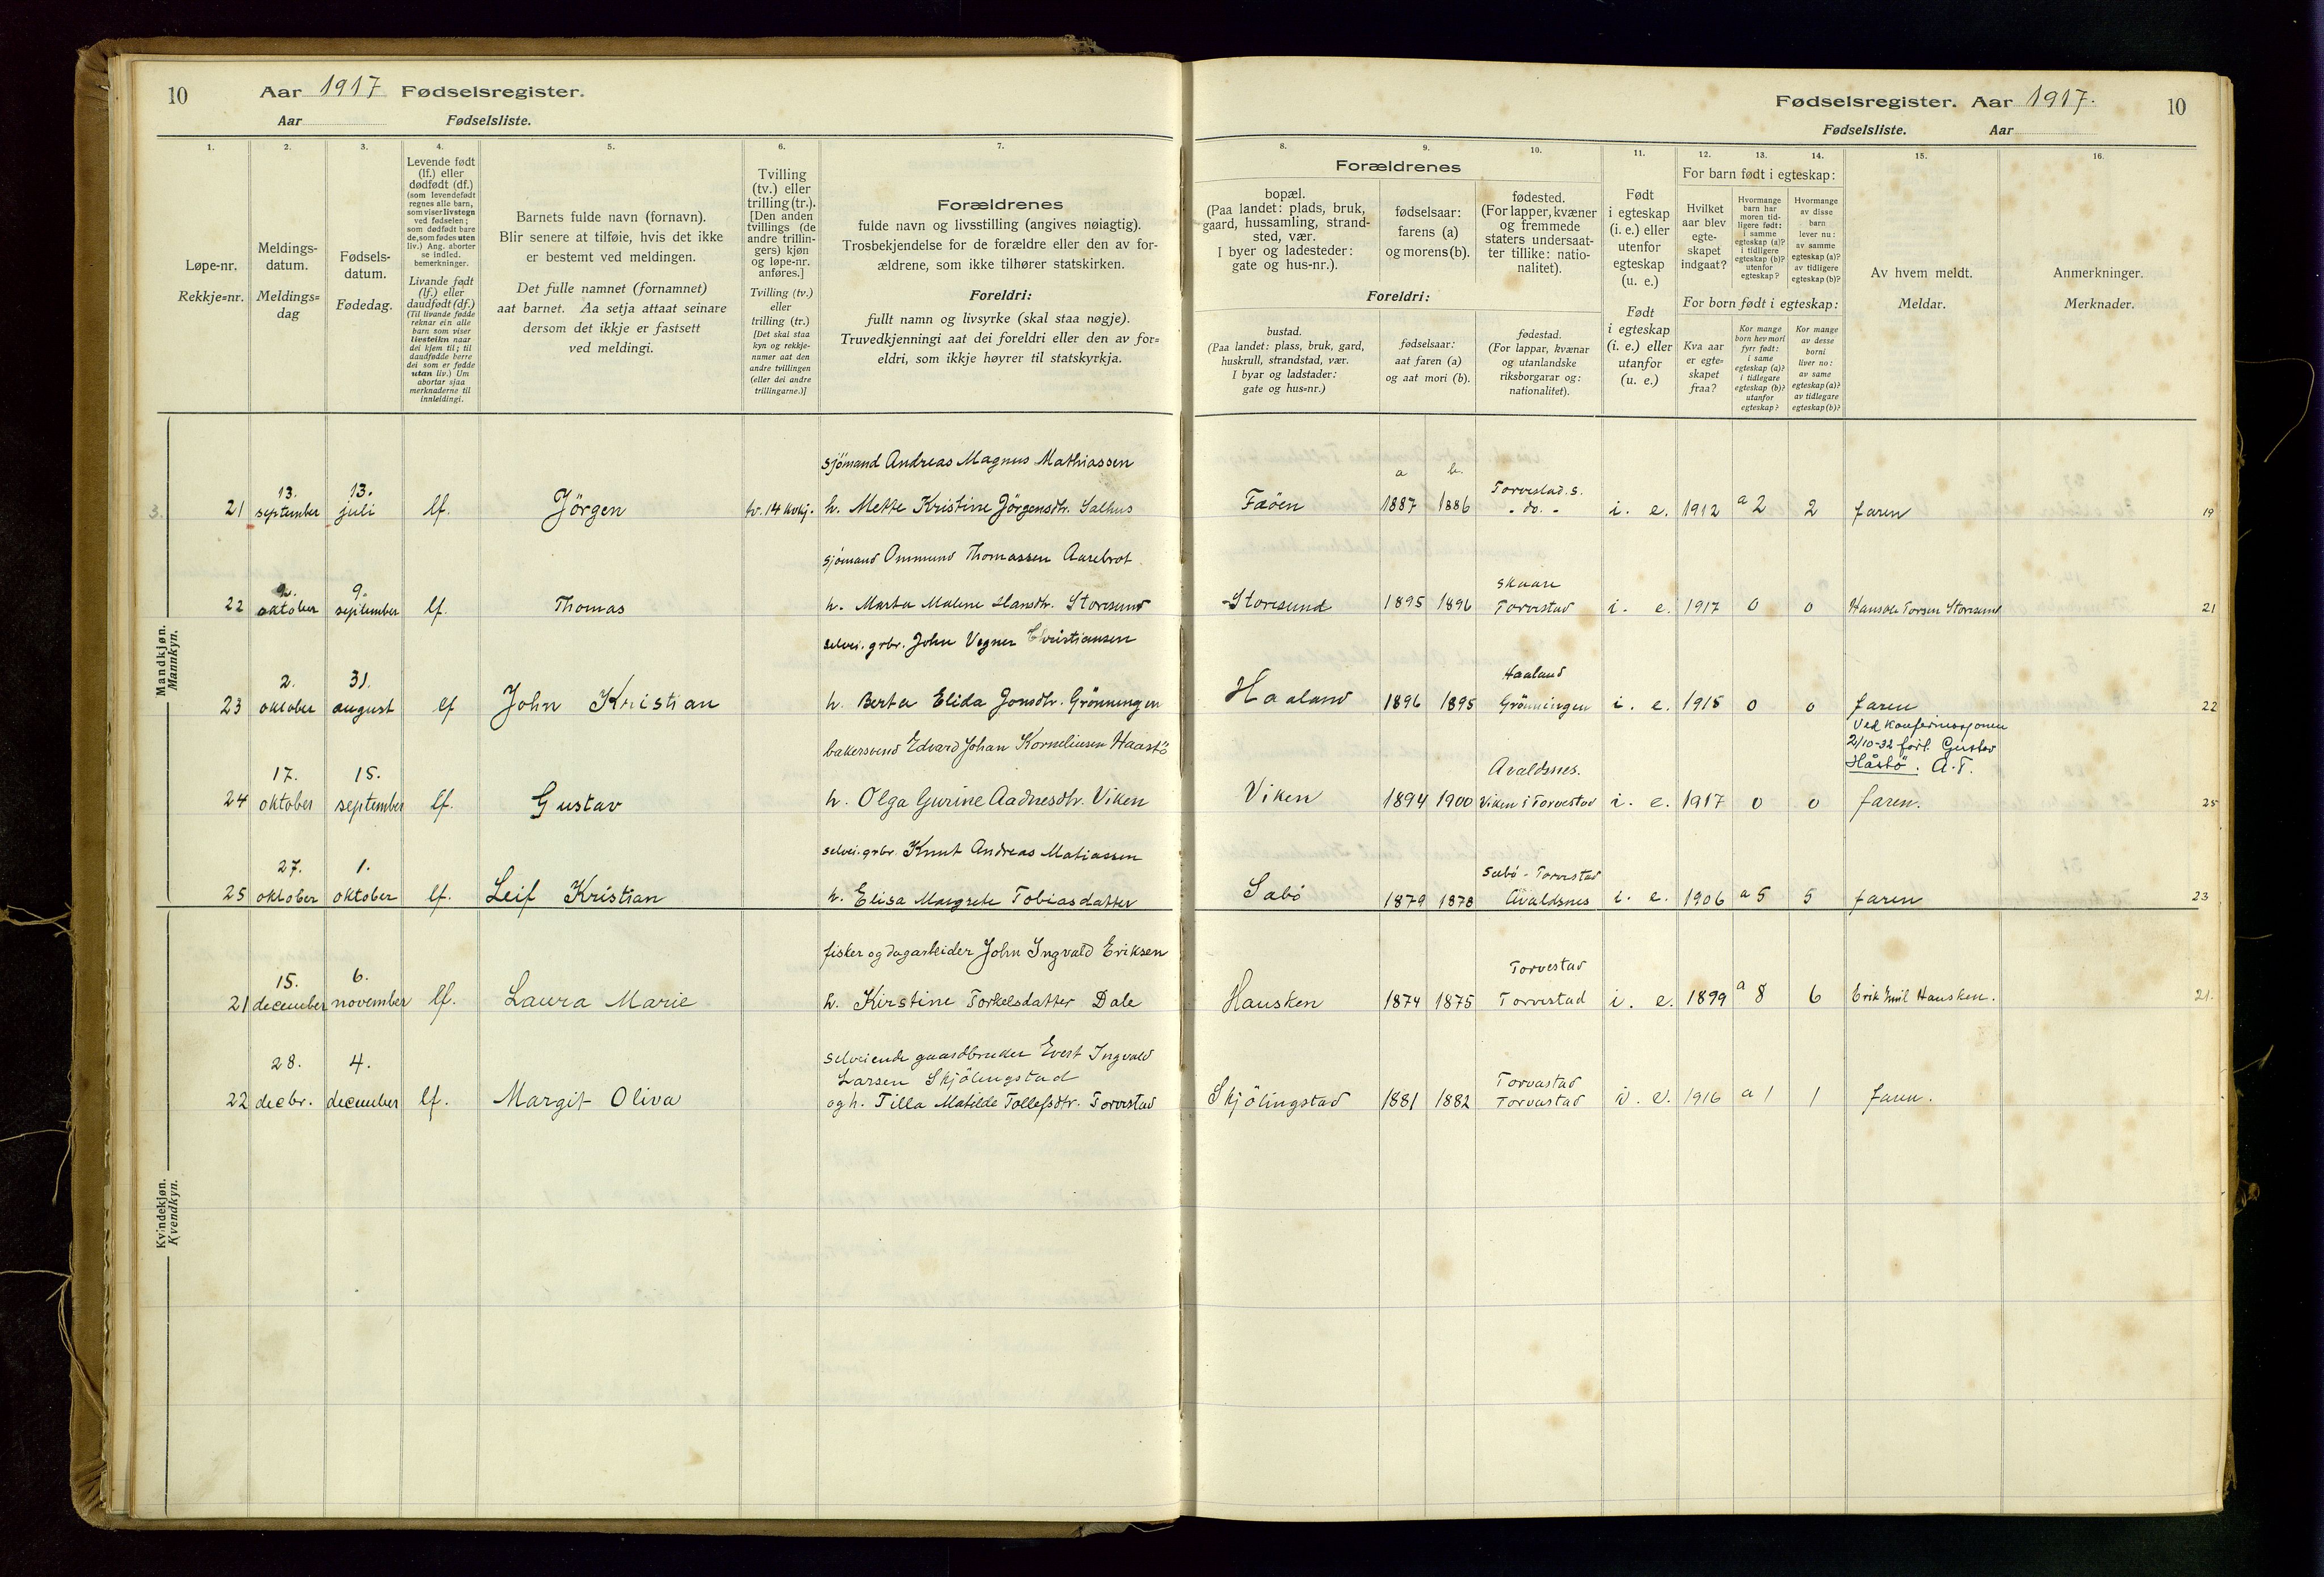 10 Aar 1917 Fødselsregister.
Aar Fødselsliste.
Fødselsregister. Aar 1917. 10
Fødselsliste. Aar
1. 2. 3. 4. 5. 6. 7.
Løpe-nr.
Rekkje=nr.
Meldings-
datum.
Meldings=
dag
Fødsels-
datum.
Fødedag.
Levende født
(lf.) eller
dødfødt (df.)
(som levendefødt
regnes alle barn,
som viser livstegn
ved fødselen;
som dødfødt bare
de, som fødes uten
liv.) Ang. aborter
se indled.
bemerkninger.
Livande født
(lf.) eller
daudfødt (df.)
(Til livande fødde
reknar ein alle
barn som viser
livsteikn naar
dei kjem til; til
daudfødde berre
dei som er fødde
utan liv.) Um
abortar sjaa
merknaderne til
innleidingi.
Barnets fulde navn (fornavn).
Blir senere at tilføie, hvis det ikke
er bestemt ved meldingen.
Det fulle namnet (fornamnet)
aat barnet. Aa setja attaat seinare
dersom det ikkje er fastsett
ved meldingi.
Tvilling
(tv.) eller
trilling (tr.).
[Den anden
tvillings (de
andre trillin-
gers) kjøn
og løpe-nr.
anføres.]
Tvilling (tv.)
eller
trilling (tr.)
[Det skal staa
kyn og rekkje-
numer aat den
andre tvillingen
(eller dei andre
trillingarne.)]
Forældrenes
fulde navn og livsstilling (angives nøiagtig).
Trosbekjendelse for de forældre eller den av for-
ældrene, som ikke tilhører statskirken.
Foreldri:
fullt namn og livsyrke (skal staa nøgje).
Truvedkjenningi aat dei foreldri eller den av for=
eldri, som ikkje høyrer til statskyrkja.
8. 9. 10. 11. 12. 13. 14. 15. 16.
Forældrenes
bopæl.
(Paa landet: plads, bruk,
gaard, hussamling, strand-
sted, vær.
I byer og ladesteder:
gate og hus-nr.).
fødselsaar:
farens (a)
og morens (b).
fødested.
(For lapper, kvæner
og fremmede
staters undersaat-
ter tillike: natio-
nalitet).
Foreldri:
bustad.
(Paa landet: plass, bruk, gard,
huskrull, strandstad, vær.
I byar og ladstader:
gate og hus=nr.)
fødselsaar:
aat faren (a)
og aat mori (b).
fødestad.
(For lappar, kvænar
og utanlandske
riksborgarar og:
nationalitet).
Født
i egteskap
(i. e.) eller
utenfor
egteskap
(u. e.)
Født
i egteskap
(i. e.) eller
utanfor
(u. e.)
For barn født i egteskap:
Hvilket
aar blev
egte-
skapet
indgaat?
Hvormange
barn har
moren tid-
ligere født:
i samme
egteskap (a)?
i tidligere
egteskap (b)?
utenfor
egteskap?
Hvormange
av disse
barn
lever nu:
av samme
egteskap (a)?
av tidligere
egteskap (b)?
For born født i egteskap:
Kva aar
er egte=
skapet
fraa?
Kor mange
born hev mori
fyrr født:
i same
egteskap (a)?
i tidlegare
egteskap (b)?
utanfor
egteskap?
Kor mange
av desse
borni
liver no:
av same
egteskap (a)?
av tidlegare
egteskap (b)?
Av hvem meldt.
Meldar.
Anmerkninger.
Merknader.
Mandkjøn.
Mannkyn.
sjömand Andreas Magnus Mathiassen
a b.
13. 13. Torvestad. S.
3. 21 september juli lf. Jörgen tv. 14 kvkj. h. Mette Kristine Jörgensdtr. Salhus Faöen 1887 1886 - do. - i. e. 1912 a 2 2 faren 19
sjömand Ommund Thomassen Aarebrot
9. Skaare
22 oktober september lf. Thomas h. Marta Malene Hansdtr. Storesund Storesund 1895 1896 Torvestad i. e. 1917 0 0 Torsen Storesund 21
selvei. grbr. John Vegner Christiansen
2. 31. Haaland
23 oktober august lf John Kristian h. Berta Elida Jonsdtr. Grönningen Haaland 1896 1895 Grönningen i. e. 1915 0 0 faren 22
bakersvend Edvard Johan Korneliusen Haastö
Ved konfirmasjonen
2/10-32 Gustav
Håstö. A.T.
17. 15. Avaldsnes.
24 oktober september lf. Gustav h. Olga Gurine Aadnesdtr. Viken Viken 1894 1900 Viken i Torvestad i. e. 1917 0 0 faren. 25
selvei. grbr. Knut Andreas Matiassen
27. 1. Sæbö - Torvestad
25 oktober oktober lf. Leif Kristian h. Elisa Margrete Tobiasdatter Sæbö 1879 1878 Avaldsnes i. e. 1906 a 5 5 faren 23
Kvindekjøn.
Kvendkyn.
fisker og dagarbeider John Ingvald Eriksen
15. 6. Torvestad
21 december november lf. Laura Marie h. Kirstine Torkelsdatter Dale Hausken 1874 1875 Torvestad i. e. 1899 a 8 6 Erik Emil Hausken. 21.
selveiende gaardbruker Evert Ingvald
28. 4. Larsen Skjölingstad Torvastad
22 decbr. december lf. Margit Oliva og h. Tilla Matilde Tollefsdtr. Torvestad Skjölingstad 1881 1882 Torvastad i. e. 1916 a 1 1 faren.